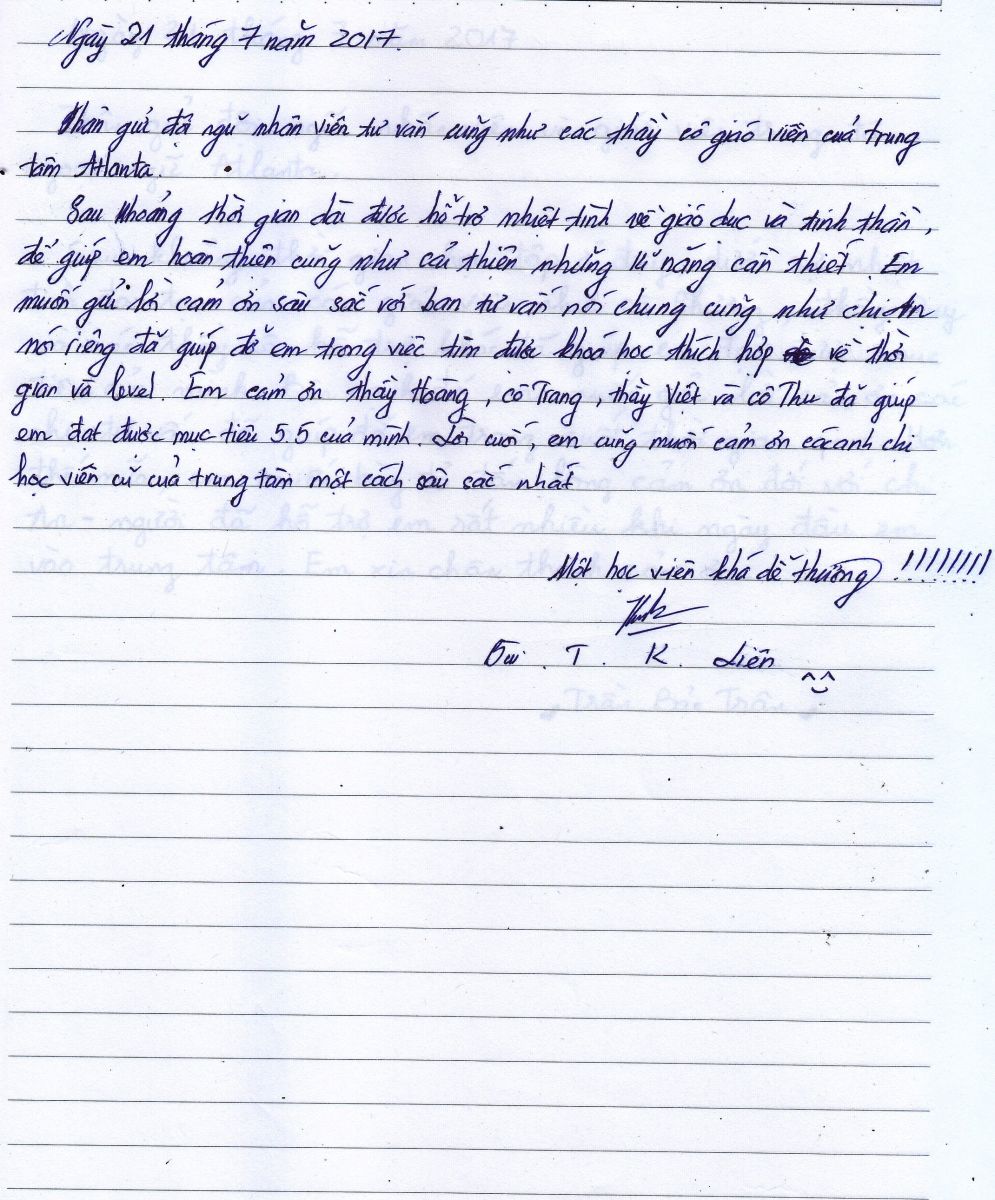 Ngày 21 tháng 7 năm 2017.
Thân gửi đội ngũ nhân viên tư vấn cũng như các thầy cô giáo viên của trung
tâm Atlanta.
Sau khoảng thời gian dài được hỗ trợ nhiệt tình về giáo dục và tinh thần,
để giúp em hoàn thiện cũng như cải thiện những kĩ năng cần thiết. Em
muốn gửi lời cảm ơn sâu sắc với ban tư vấn nói chung cũng như chị An
nói riêng đã giúp đỡ em trong việc tìm được khoá học thích hợp về thời
gian và level. Em cảm ơn thầy Hoàng, cô Trang, thầy Việt và cô Thu đã giúp
em đạt được mục tiêu 5.5 của mình. Lời cuối, em cũng muốn cảm ơn các anh chị
học viên cũ của trung tâm một cách sâu sắc nhất
Một học viên khá dễ thương !!!!!!!!
T. K. Liên ^^